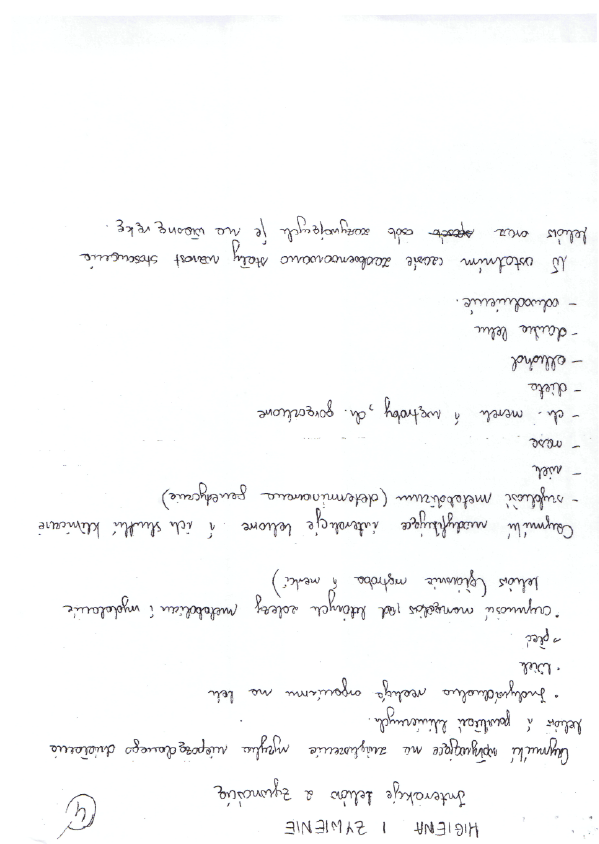 HIGIENA I ŻYWIENIE
4
Interakcje leków z żywnością
Czynniki wpływające na zwiększenie ryzyka niepożądanego działania
leków i powikłań klinicznych.
• Indywidualna reakcja organizmu na lek
• Wiek
• płeć
• czynność narządów od których zależy metabolizm i wydalanie
leków (głównie wątroba i nerki)
Czynniki modyfikujące interakcje lekowe i ich skutki kliniczne
- szybkość metabolizmu (determinowana genetycznie)
- wiek
- rasa
- ch. nerek i wątroby, ch. gorączkowe
- dieta
- alkohol
- dawka leku
- odwodnienie.
W ostatnim czasie zaobserwowano stały wzrost stosowania
leków oraz osób zażywających je na własną rękę.